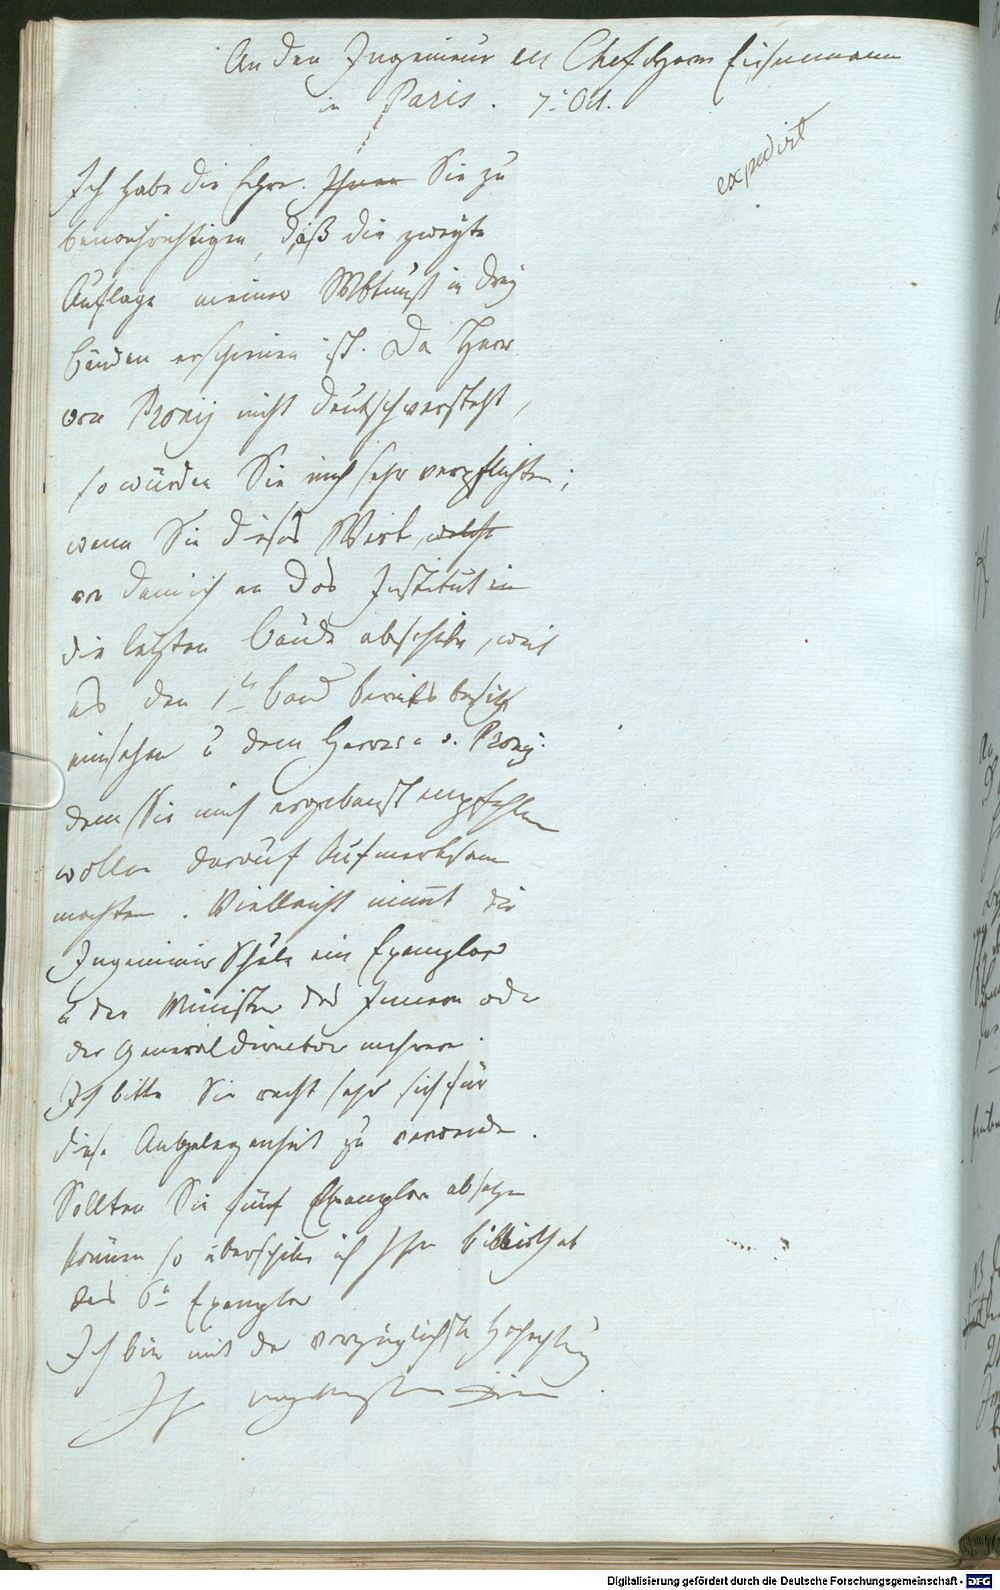 An den Ingenieur en Chef Herrn Eisenmann
in Paris. 7. Oct.
expedirt
Ich habe die Ehre Ihnen Sie zu
benachrichtigen, daß die zweyte
Auflage meiner in drey
Bänden erschienen ist. Da Herr
von Prony nicht deutsch versteht,
so würden Sie mich sehr verpflichten,
wenn Sie dieses Werk welches
von dem ich an das Institut in
die letzten Bände abschicke, weil
es den 1n Band bereits besitzt
einsehen u dem Herren v. Prony
dem Sie mich ergebenst empfehlen
wollen darauf Aufmerksam
machten. Vielleicht nimmt die
Ingenieur Schule ein Exemplar
u der Minister des Innern oder
der Generaldirector mehrere.
Ich bitte Sie recht sehr sich für
diese Angelegenheit zu verwenden.
Sollten Sie fünf Exemplare absetzen
können so überschicke ich Ihrer Bibliothek
das 6te Exemplar
Ich bin mit der vorzüglichsten Hochachtung
Ihr ergebenster Diener
Digitalisierung gefördert durch die Deutsche Forschungsgemeinschaft - DFG